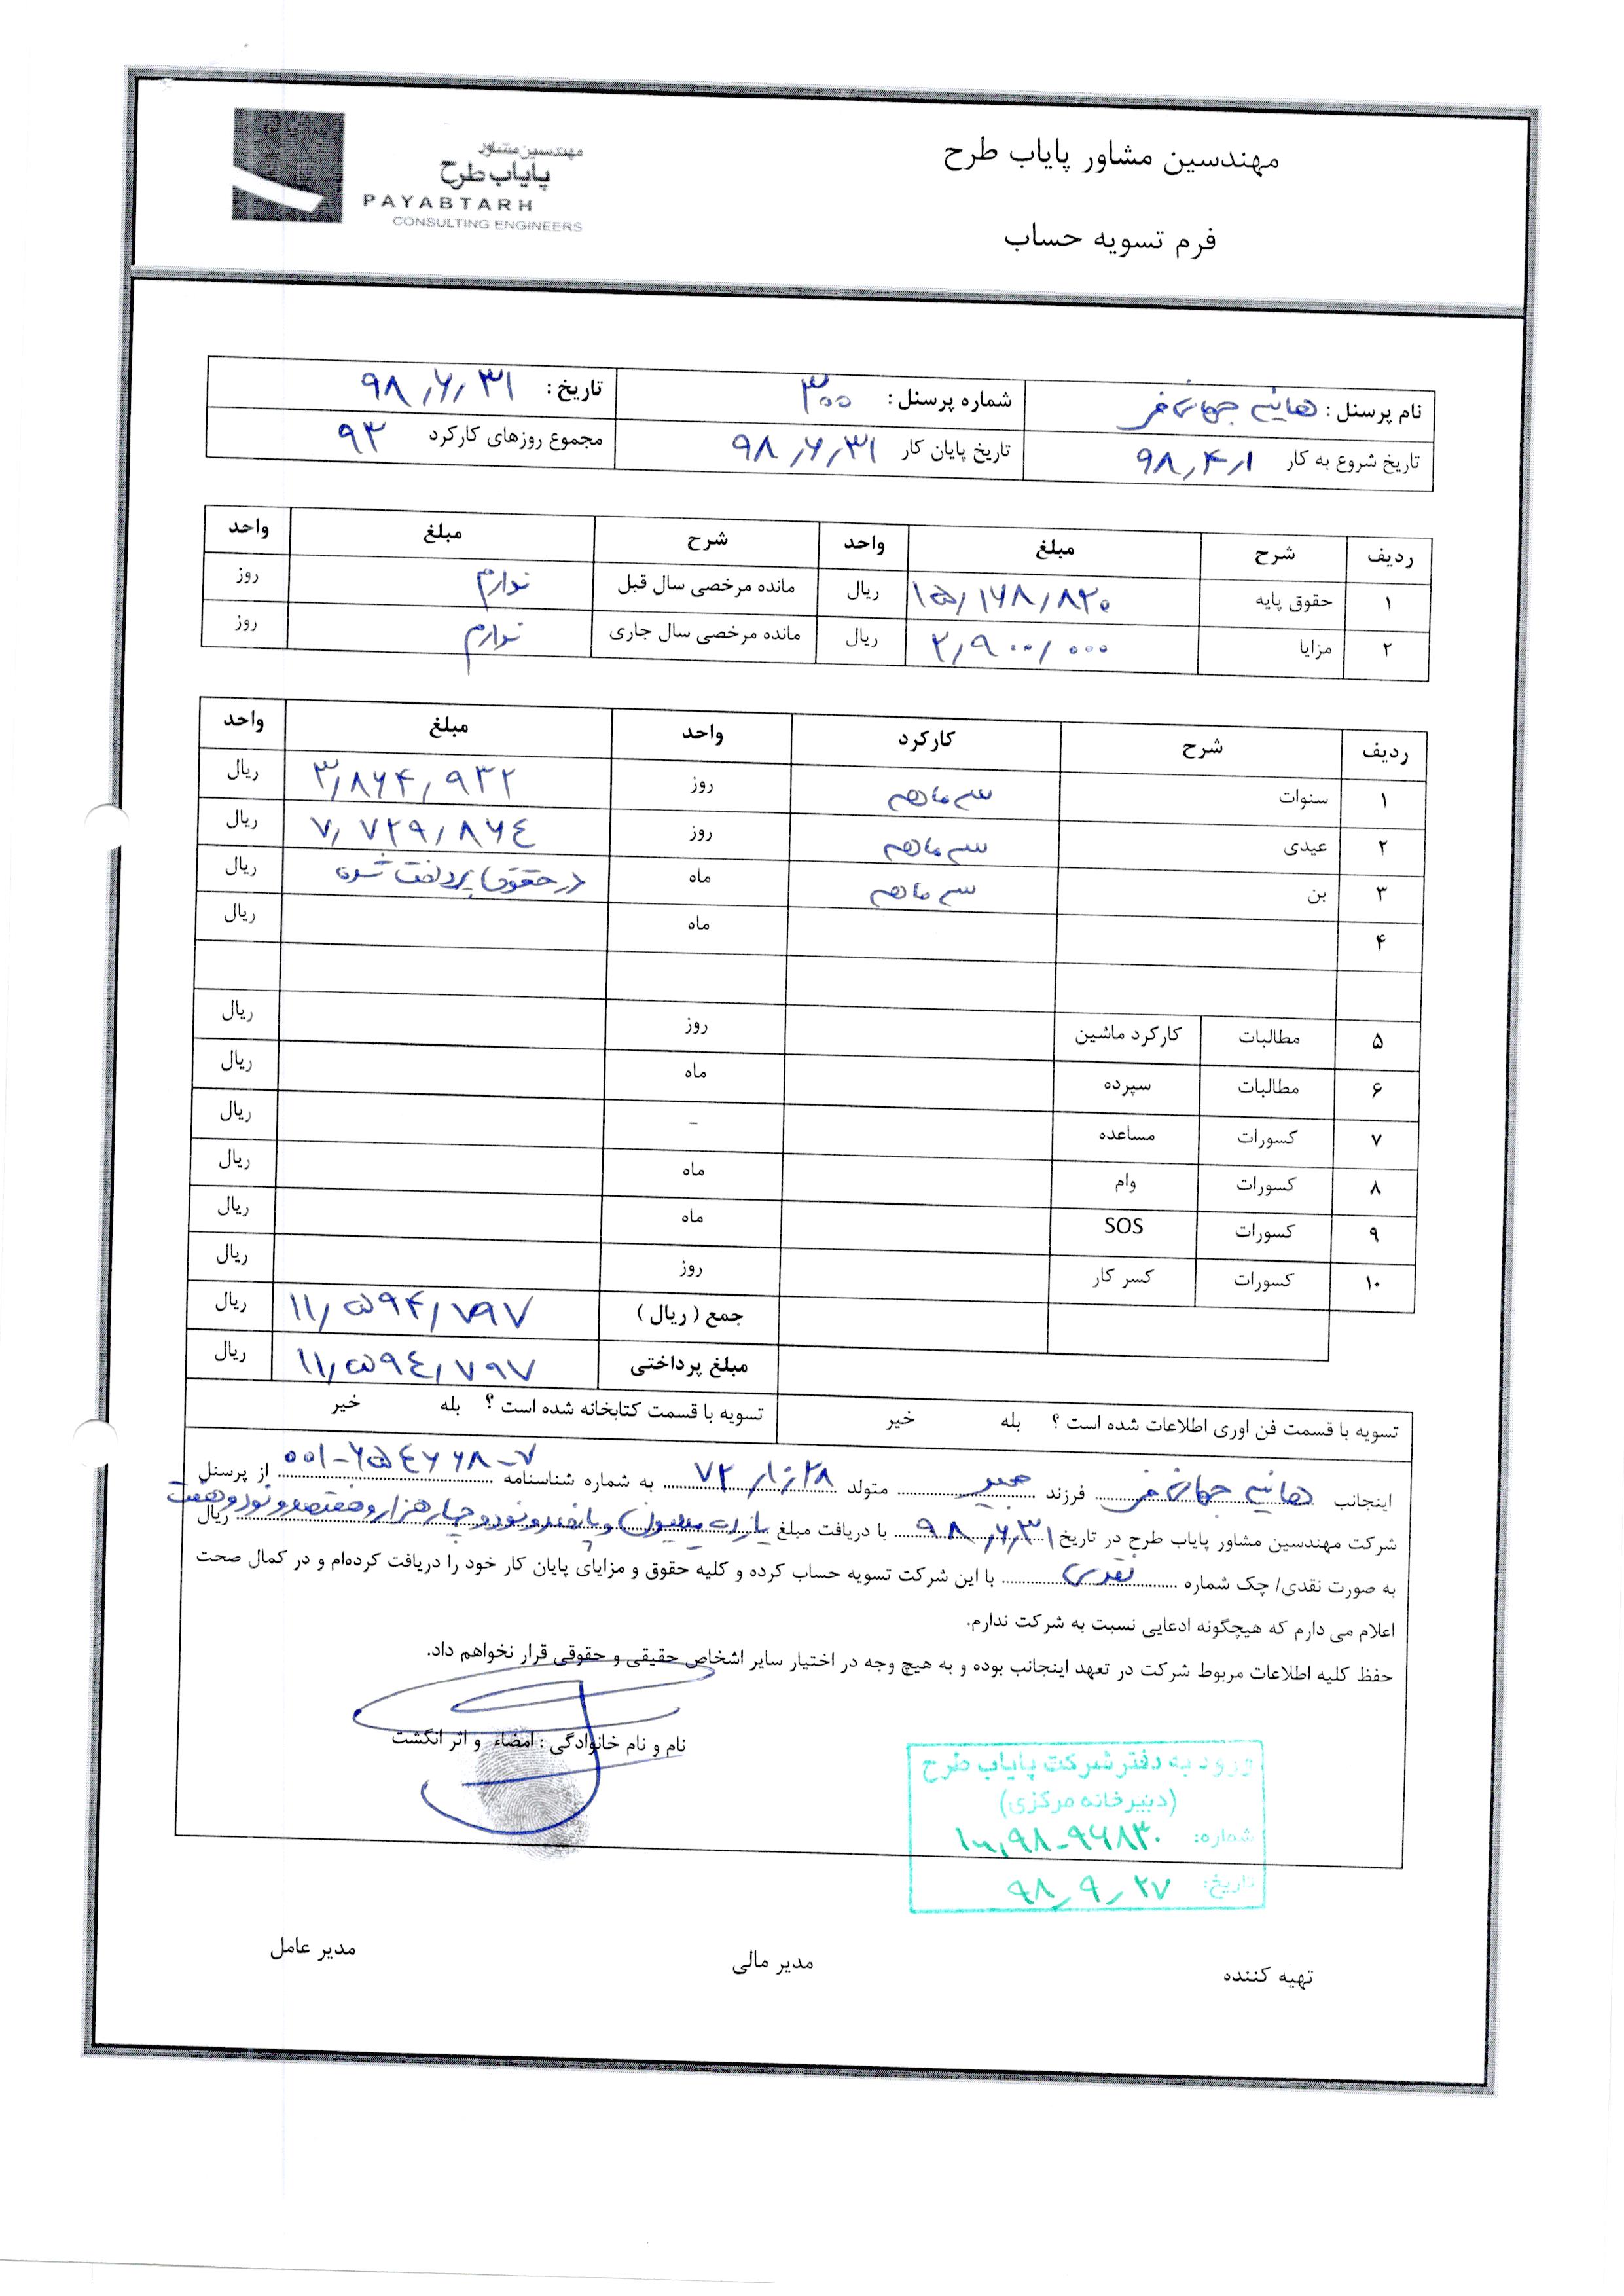 مهندسین مشاور پایاب طرح
مهندسین مشاور
پایاب طرح
PAYABTARH
CONSULTING ENGINEERS
فرم تسویه حساب
نام پرسنل : هانیه جهانی فر شماره پرسنل : ۳۰۰ تاریخ : ۹۸,۶,۳۱
تاریخ شروع به کار ۹۸,۴,۱ تاریخ پایان کار ۹۸,۶,۳۱ مجموع روزهای کارکرد ۹۳
ردیف شرح مبلغ واحد شرح مبلغ واحد
۱ حقوق پایه ۱۵,۱۶۸,۸۲۰ ریال مانده مرخصی سال قبل ندارم روز
۲ مزایا ۲,۹۰۰,۰۰۰ ریال مانده مرخصی سال جاری ندارم روز
ردیف شرح کارکرد واحد مبلغ واحد
۱ سنوات سه ماهه روز ۳,۸۶۴,۹۳۲ ریال
۲ عیدی سه ماهه روز ۷,۷۲۹,۸۶٤ ریال
۳ بن سه ماهه ماه در حقوق پرداخت شده ریال
۴ ماه ریال
۵ مطالبات کارکرد ماشین روز ریال
۶ مطالبات سپرده ماه ریال
۷ کسورات مساعده - ریال
۸ کسورات وام ماه ریال
۹ کسورات SOS ماه ریال
۱۰ کسورات کسر کار روز ریال
جمع ( ریال ) ۱۱,۵۹۴,۷۹۷ ریال
مبلغ پرداختی ۱۱,۵۹٤,۷۹۷ ریال
تسویه با قسمت فن اوری اطلاعات شده است ؟ بله خیر تسویه با قسمت کتابخانه شده است ؟ بله خیر
اینجانب هانیه جهانی فر فرزند متولد ۷۲ به شماره شناسنامه ۰۰۱-۶۵٤۶۶۸-۷ از پرسنل
شرکت مهندسین مشاور پایاب طرح در تاریخ ۹۸,۶,۳۱ با دریافت مبلغ یازده میلیون و پانصد و نود و چهار هزار و هفتصد و نود و هفت ریال
به صورت نقدی/ چک شماره نقدی با این شرکت تسویه حساب کرده و کلیه حقوق و مزایای پایان کار خود را دریافت کرده‌ام و در کمال صحت
اعلام می دارم که هیچگونه ادعایی نسبت به شرکت ندارم.
حفظ کلیه اطلاعات مربوط شرکت در تعهد اینجانب بوده و به هیچ وجه در اختیار سایر اشخاص حقیقی و حقوقی قرار نخواهم داد.
نام و نام خانوادگی : امضاء و اثر انگشت
ورود به دفتر شرکت پایاب طرح
(دبیرخانه مرکزی)
شماره: ۹۸-۹۶۸۳۰
تاریخ: ۹۸,۹,۲۷
تهیه کننده مدیر مالی مدیر عامل